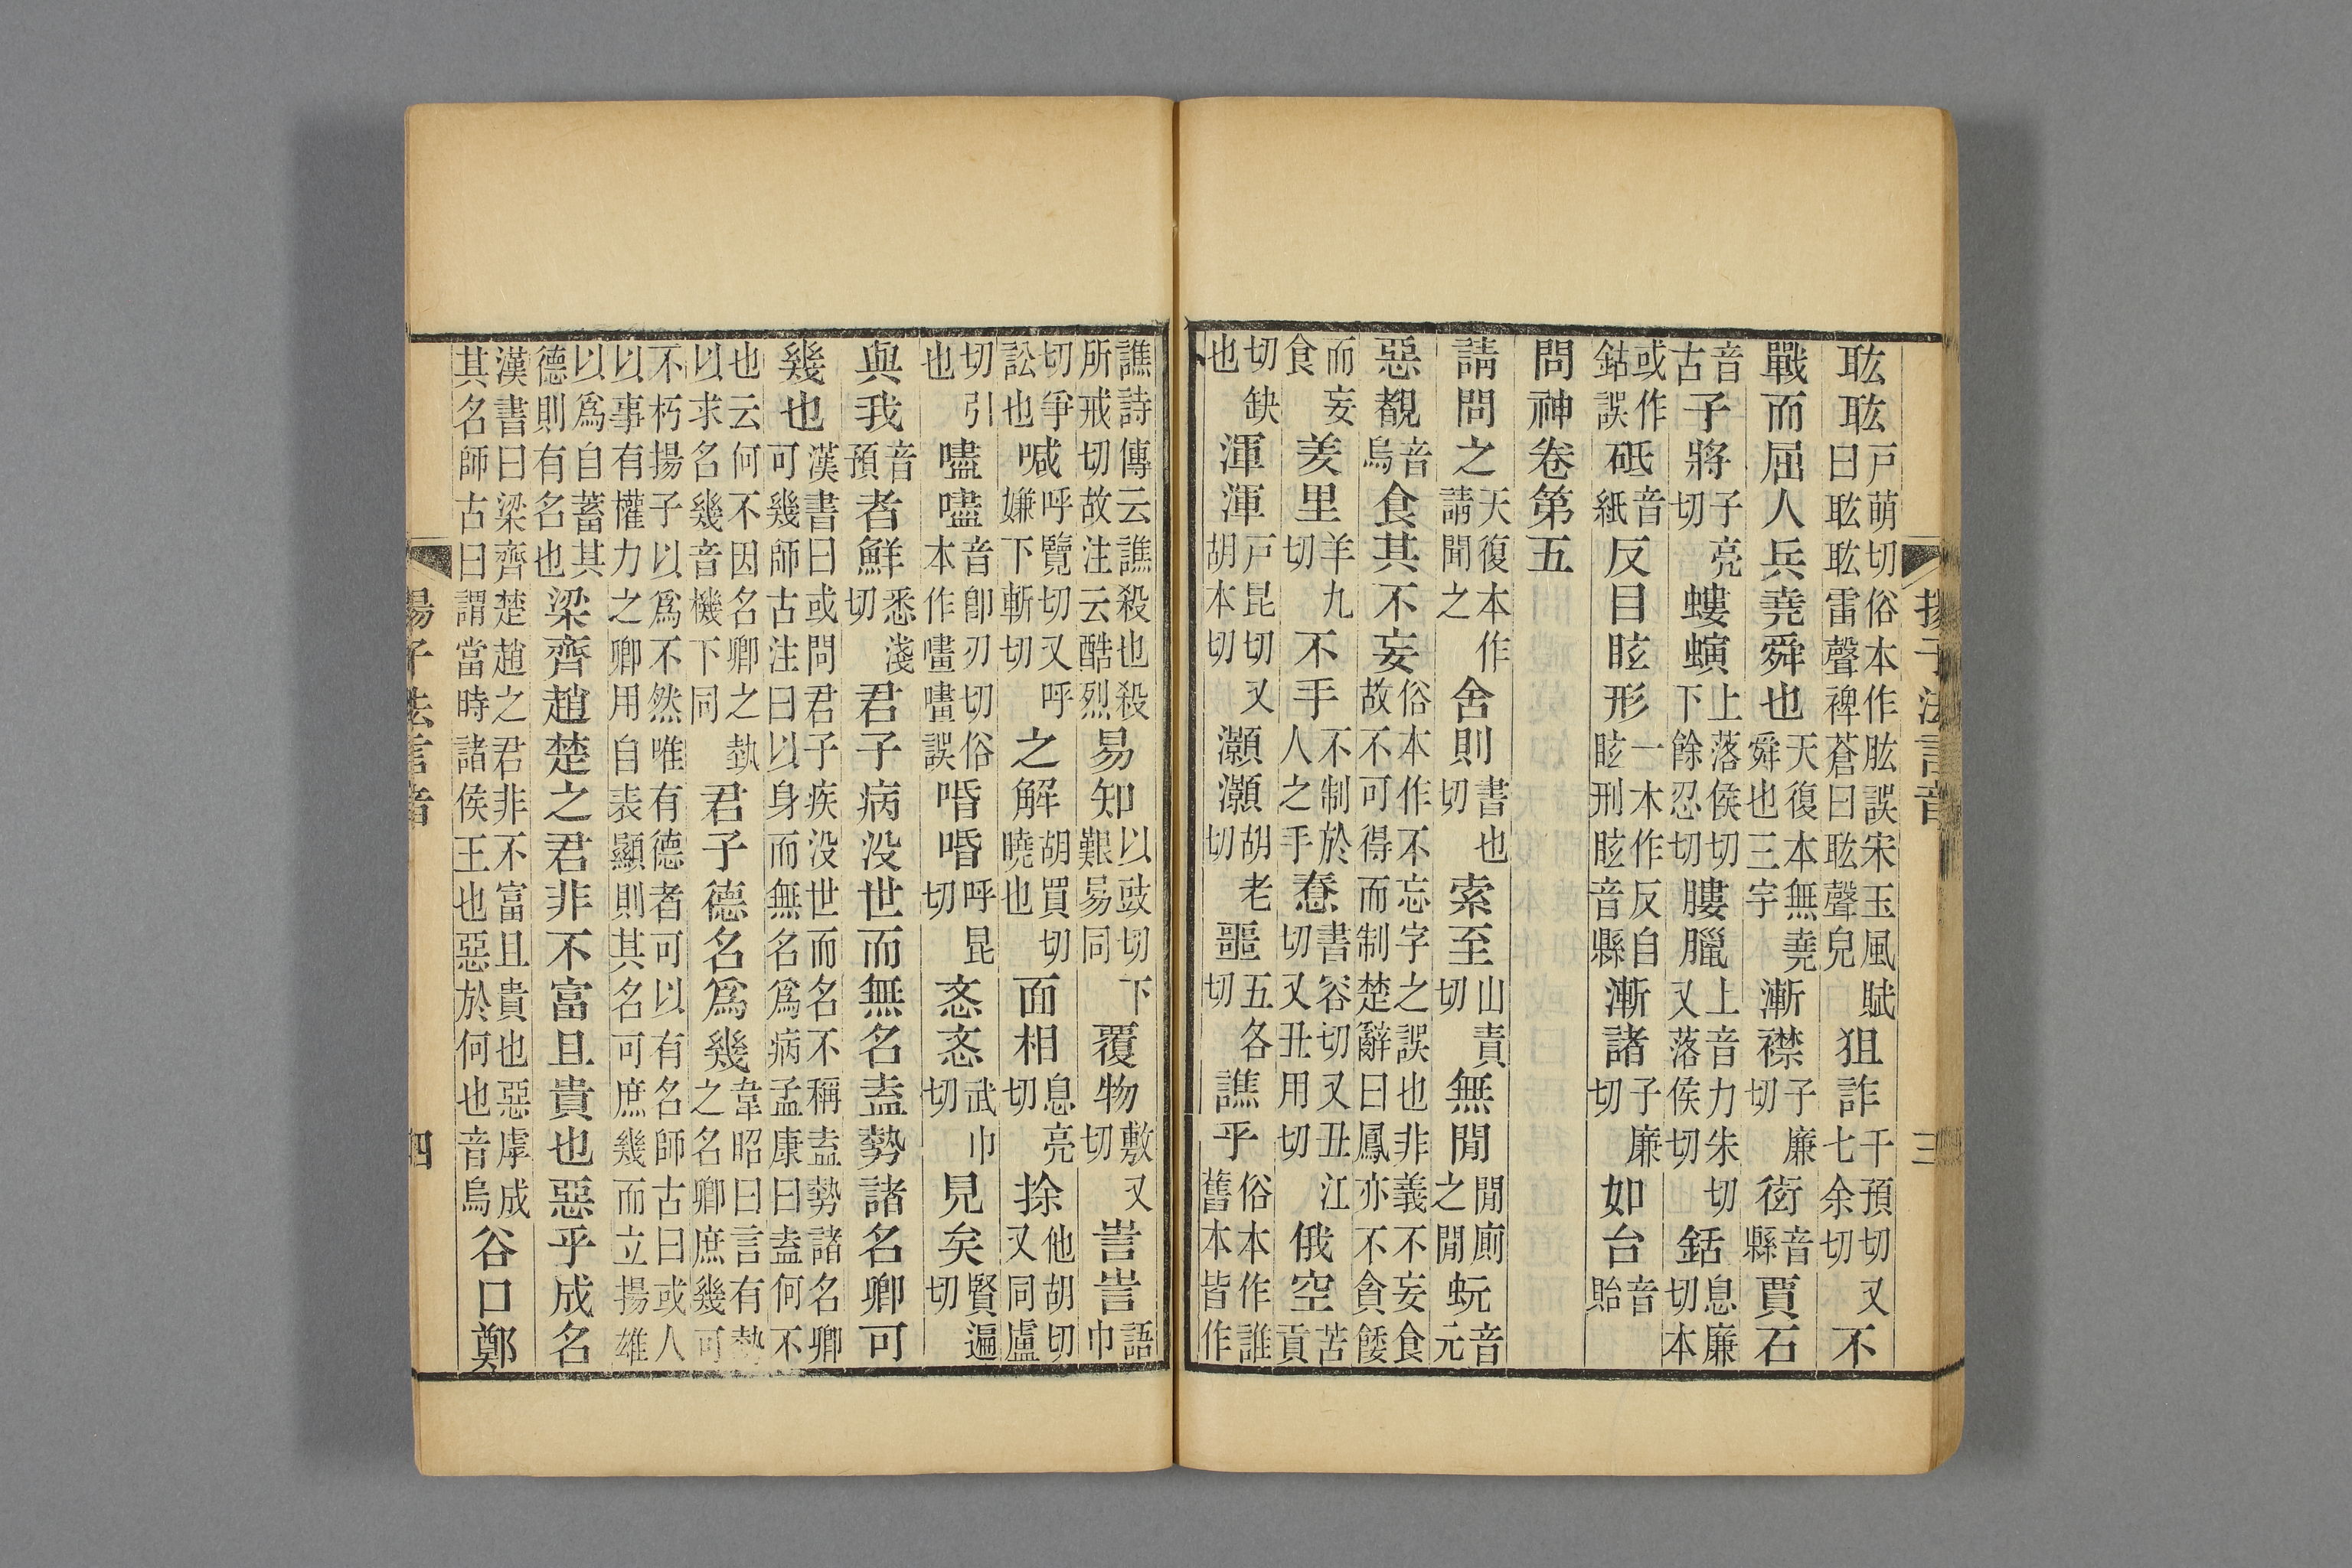 揚子法言音 三
耾耾戶萌切俗本作肱誤宋玉風賦曰耾耾雷聲裨蒼曰耾聲皃狙詐千預切又七余切不
戰而屈人兵堯舜也天復本無堯舜也三字漸襟子廉切衒音縣賈石
音古子將子亮切螻螾上落侯切下餘忍切膢臘上音力朱切又落侯切銛息廉切本
或作鈷誤砥音紙反目眩形一本作反自眩刑眩音縣漸諸子廉切如台音貽
問神卷第五
請問之天復本作請聞之舍則書也切索至山責切無閒閒廁之閒蚖音元
惡覩音烏食其不妄俗本作不忘字之誤也非義不妄食故不可得而制楚辭曰鳳亦不貪餧
而妄食羑里羊九切不手不制於人之手惷書容切又丑江切又丑用切俄空苦貢
切缺也渾渾戶昆切又胡本切灝灝胡老切噩五各切譙乎俗本作誰舊本皆作
譙詩傳云譙殺也殺所戒切故注云酷烈易知以豉切下艱易同覆物敷又切訔訔語巾
切爭訟也喊呼覽切又呼嫌下斬切之解胡買切曉也面相息亮切捈他胡切又同盧
切引也嚍嚍音卽刃切俗本作誤㖧㖧呼昆切忞忞武巾切見矣賢遍切
與我音預者鮮悉淺切君子病没世而無名盍勢諸名卿可
幾也漢書曰或問君子疾没世而名不稱盍勢諸名卿可幾師古注曰以身而無名爲病孟康曰盍何不
也云何不因名卿之埶以求名幾音機下同君子德名爲幾韋昭曰言有勢之名卿庶幾可
不朽揚子以爲不然唯有德者可以有名師古曰或人以事有權力之卿用自表顯則其名可庶幾而立揚雄
以爲自蓄其德則有名也梁齊趙楚之君非不富且貴也惡乎成名
漢書曰梁齊楚趙之君非不富且貴也惡虖成其名師古曰謂當時諸侯王也惡於何也音烏谷口鄭
揚子法言音 四